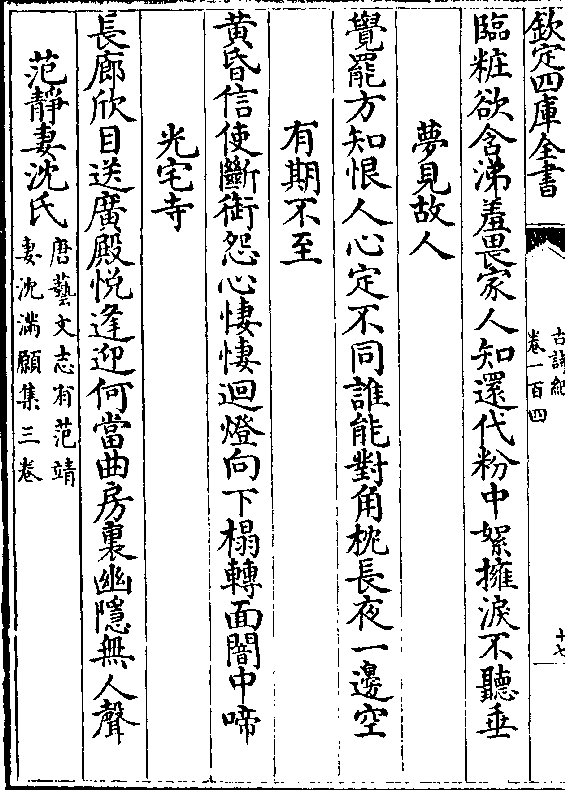 欽定四庫全書
古詩紀
卷一百四
十七
臨粧欲含涕羞畏家人知還代粉中絮擁淚不聽垂
夢見故人
覺罷方知恨人心定不同誰能對角枕長夜一邊空
有期不至
黃昏信使斷銜怨心悽悽迴燈向下榻轉面闇中啼
光宅寺
長廊欣目送廣殿悦逢迎何當曲房裏幽隱無人聲
范靜妻沈氏
唐藝文志有范靖
妻沈滿願集三卷